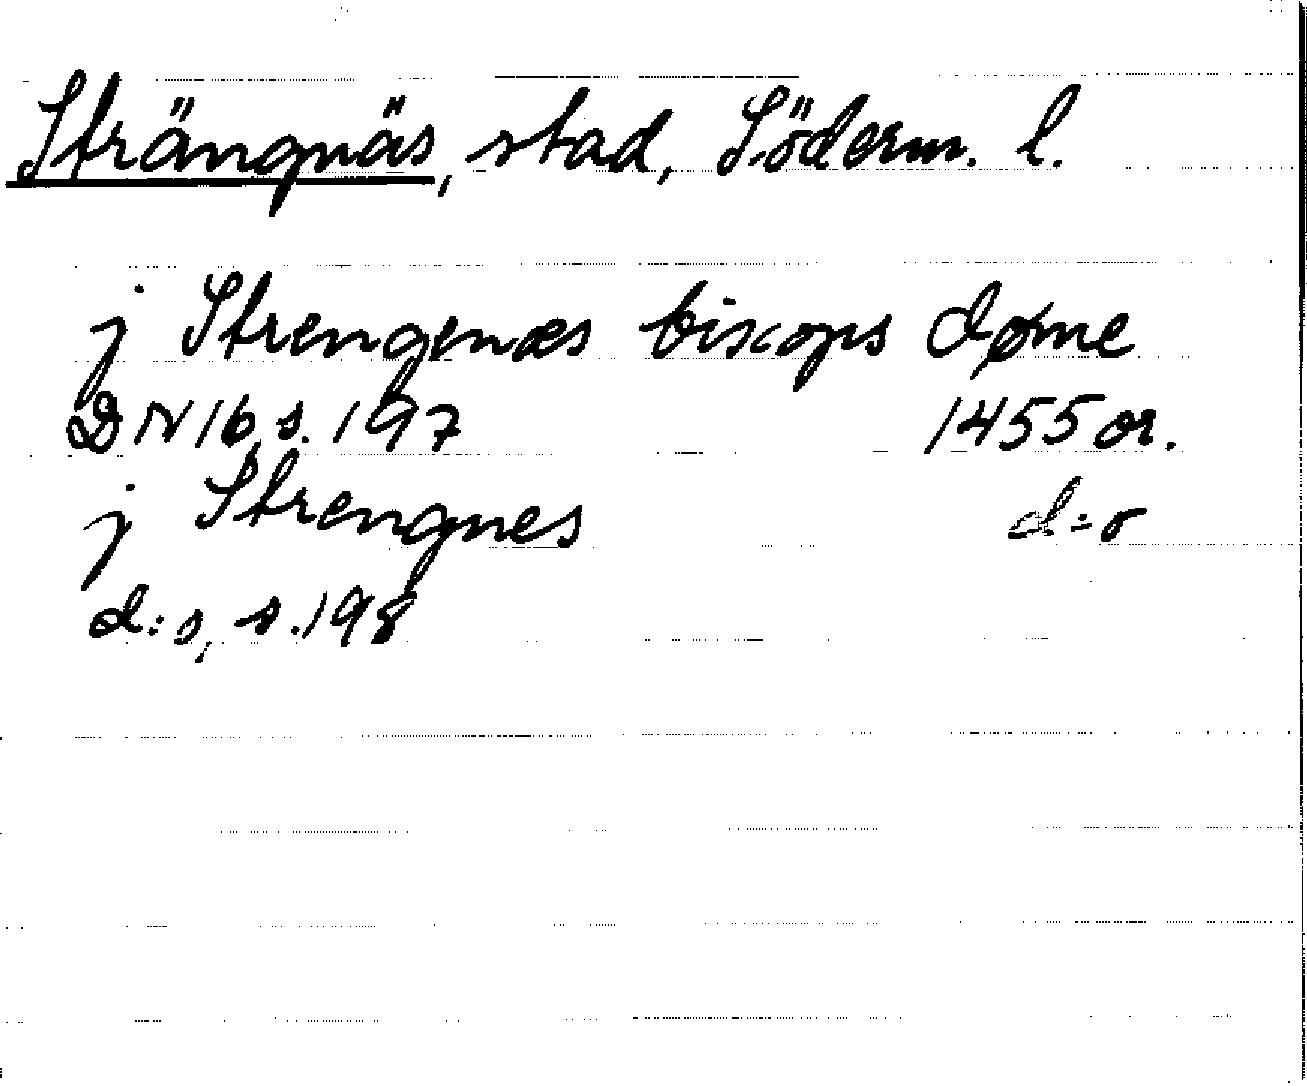 Strängnäs, stad, Söderm. l.
j Strengenæs biscops døme
DN 16, s. 197 1455 or.
j Strengnes d:o
d:s, s. 198